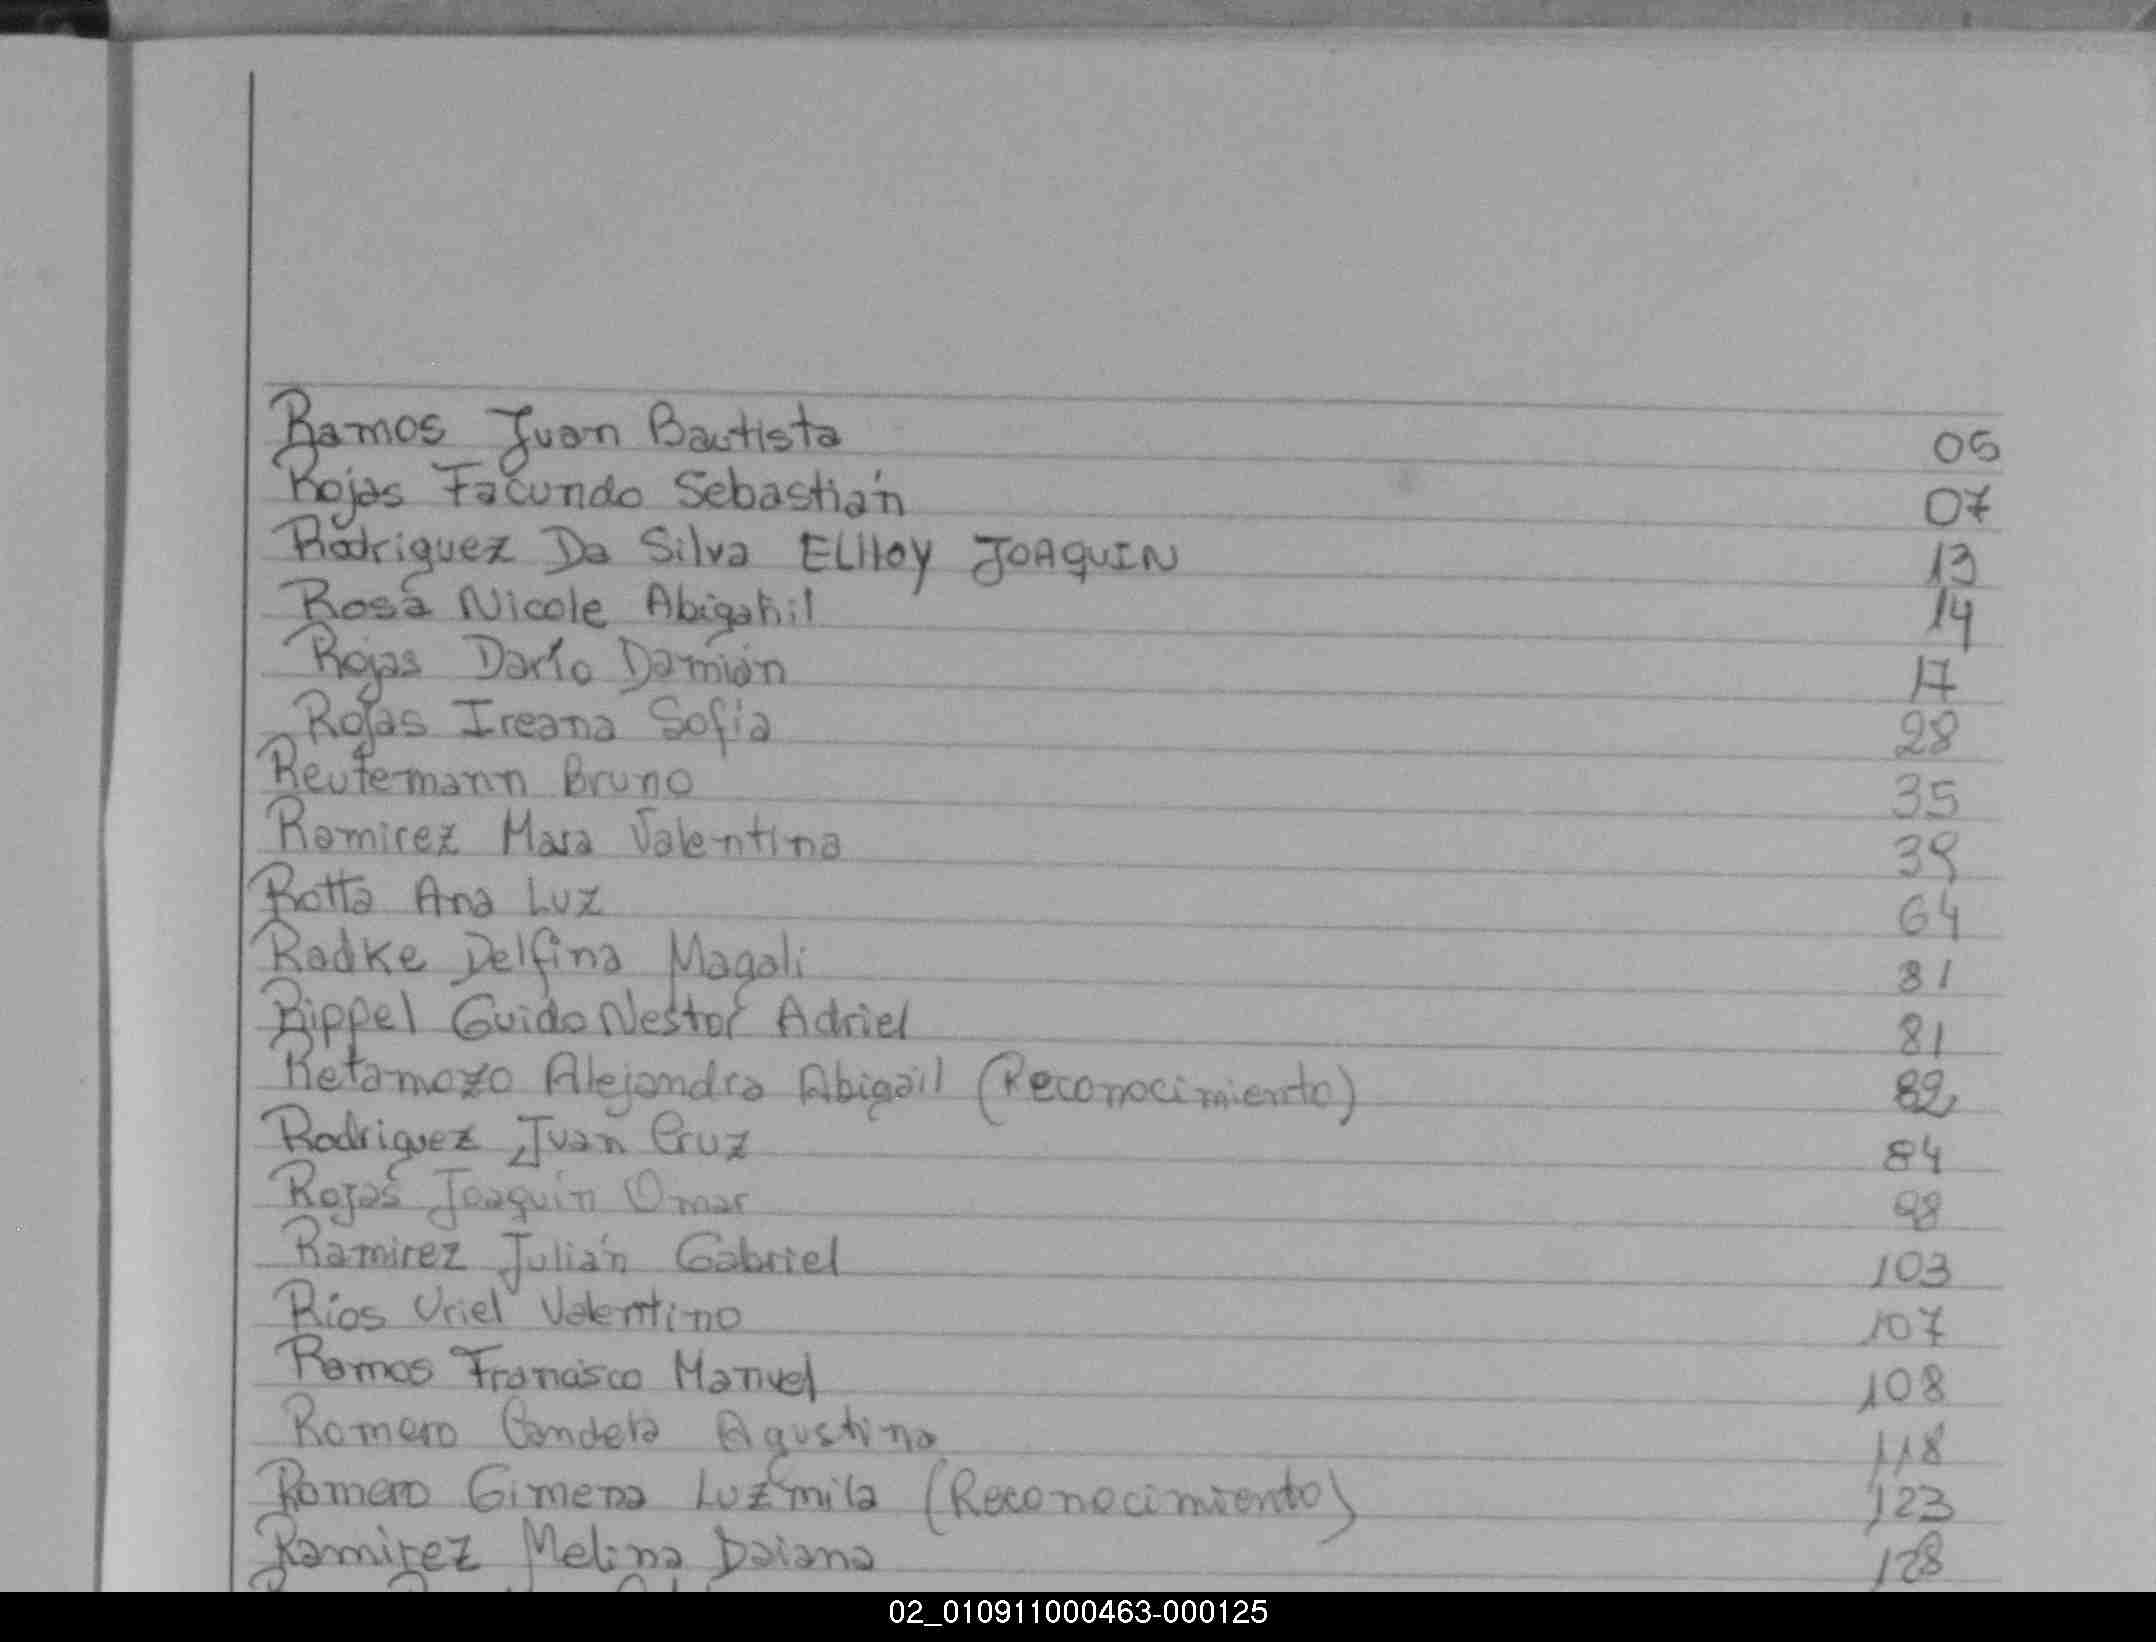 Ramos Juan Bautista 05
Rojas Facundo Sebastián 07
Rodriguez Da Silva ELIIoy JOAQUIN 13
Rosa Nicole Abigahil 14
Rojas Darío Damián 17
Rojas Ireana Sofia 28
Reutemann Bruno 35
Ramirez Mara Valentina 39
Rotta Ana Luz 64
Radke Delfina Magali 81
Rippel Guido Nestor Adriel 81
Retamozo Alejandra Abigail (Reconocimiento) 82
Rodriguez Juan Cruz 84
Rojas Joaquín Omar 98
Ramirez Julián Gabriel 103
Ríos Uriel Valentino 107
Ramos Francisco Manuel 108
Romero Candela Agustina 118
Romero Gimena Luzmila (Reconocimiento) 123
Ramirez Melina Daiana 128
02_010911000463-000125